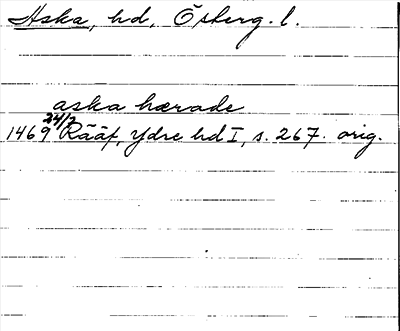 Aska, hd, Österg. l.
aska hærade
1469 24/2 Rääf, Ydre hd I, s. 267. orig.